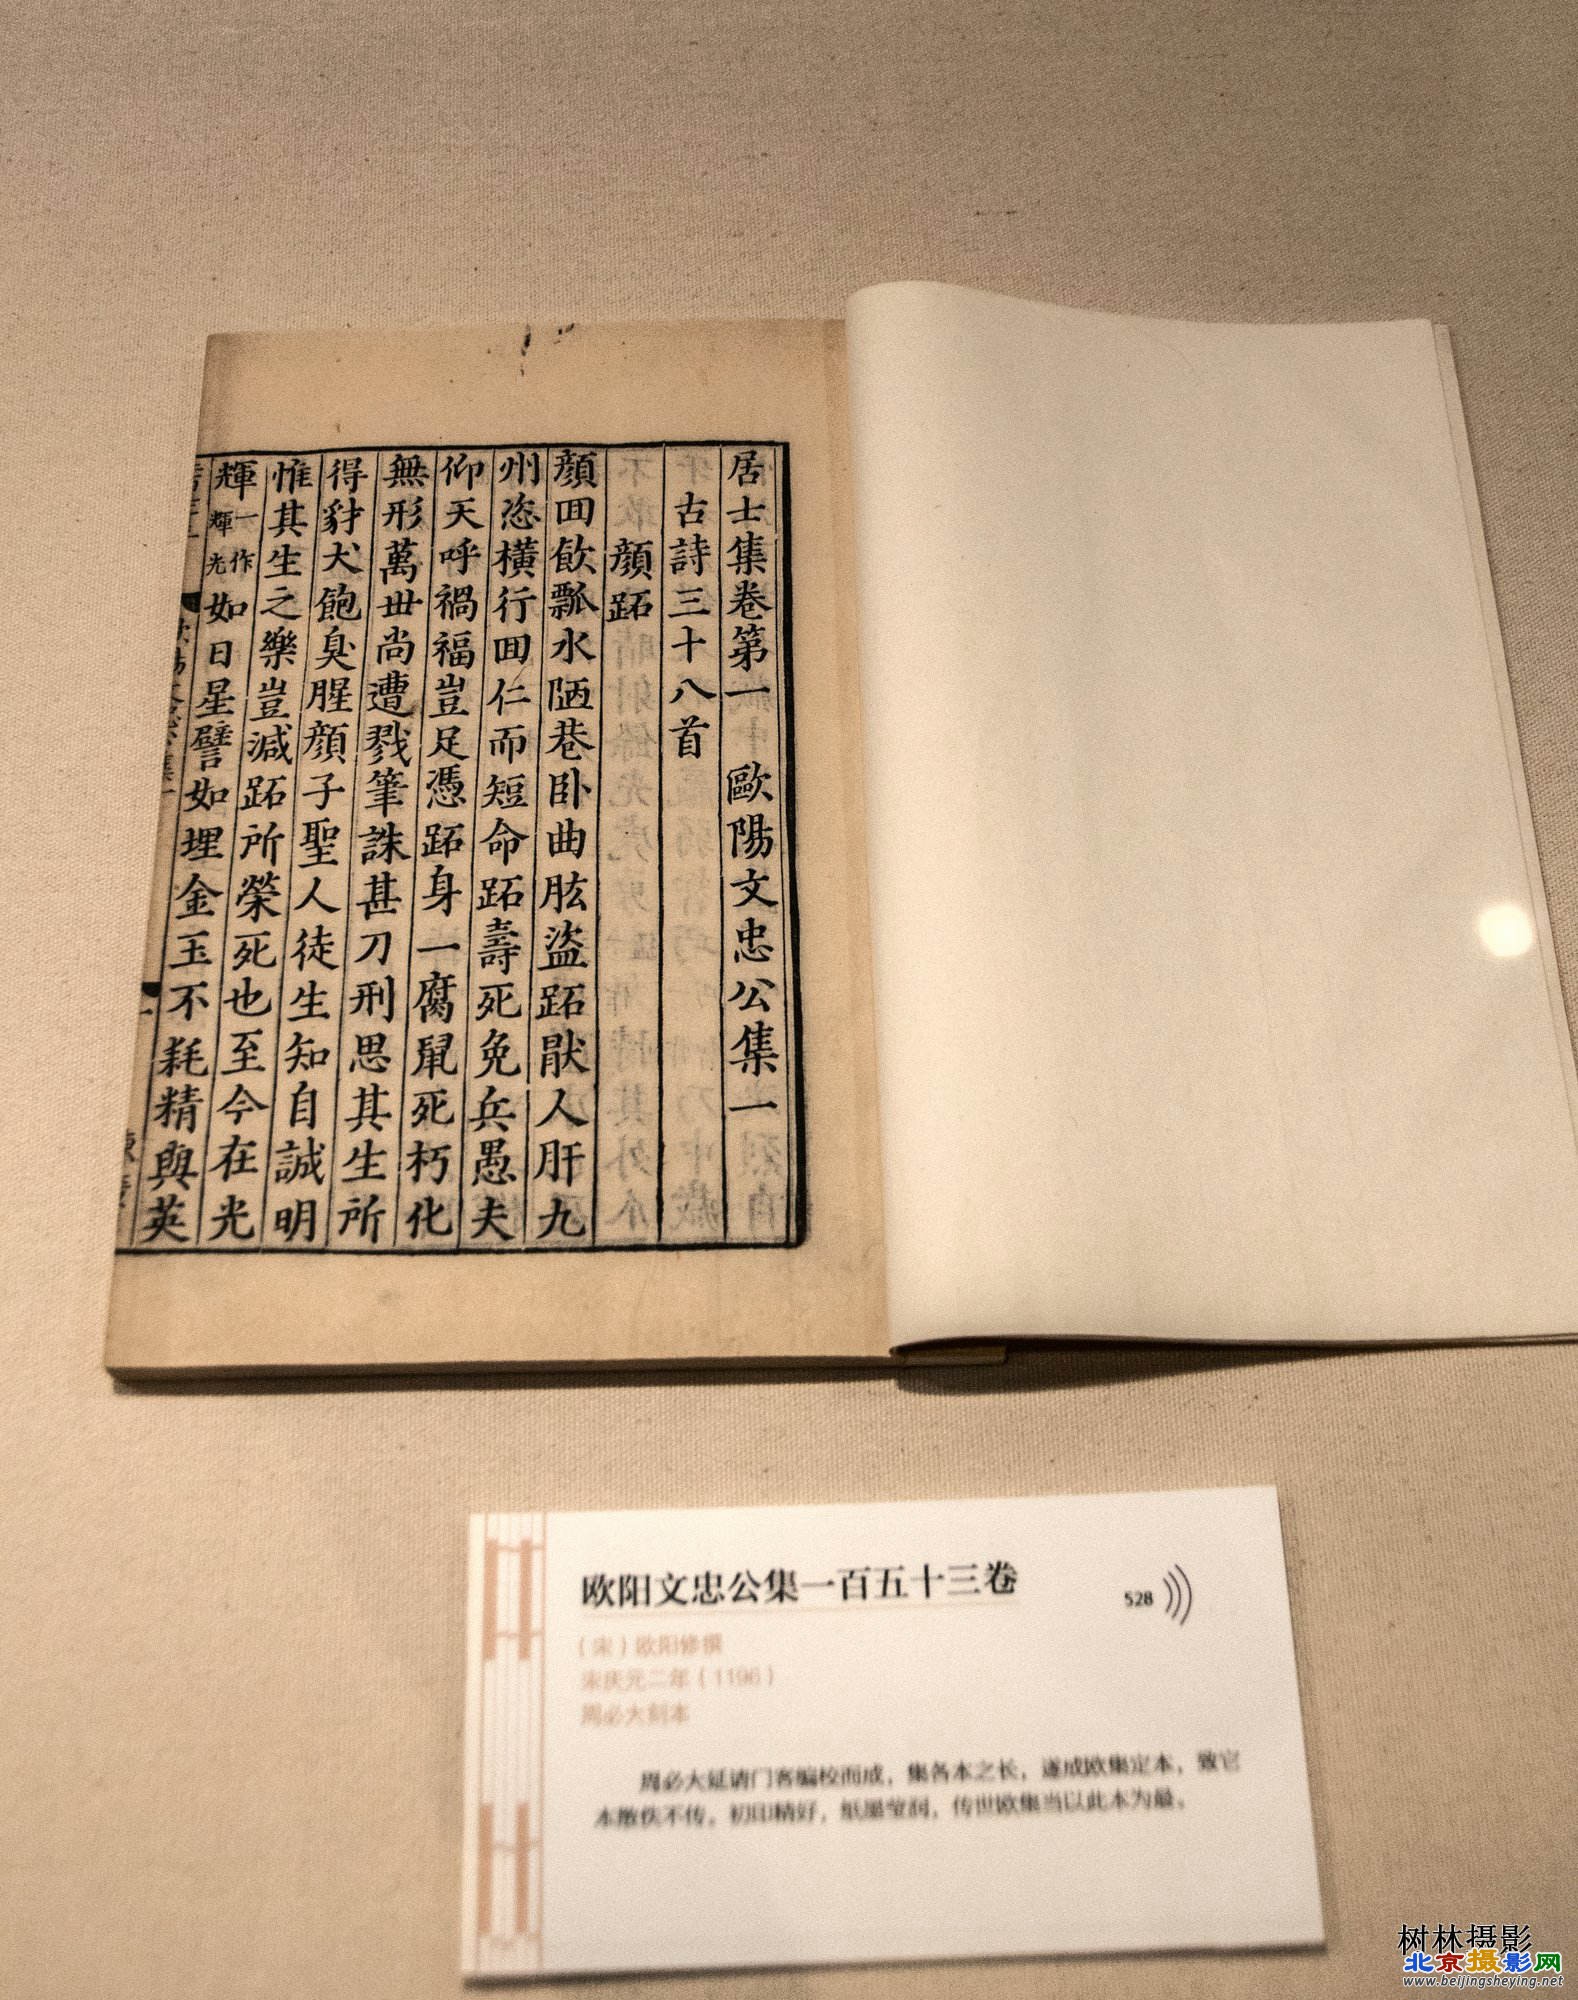 居士集卷第一 歐陽文忠公集一
古詩三十八首
顔跖
顔回飲瓢水陋巷卧曲肱盗跖猒人肝九
州恣橫行回仁而短命跖壽死免兵愚夫
仰天呼禍福豈足憑跖身一腐鼠死朽化
無形萬世尚遭戮筆誅甚刀刑思其生所
得豺犬飽臭腥顔子聖人徒生知自誠明
惟其生之樂豈減跖所榮死也至今在光
輝一作輝光如日星譬如埋金玉不耗精與英
欧阳文忠公集一百五十三卷
528
（宋）欧阳修撰
宋庆元二年（1196）
周必大刻本
周必大延请门客编校而成，集各本之长，遂成欧集定本，致它
本散佚不传。初印精好，纸墨莹润，传世欧集当以此本为最。
树林摄影
北京摄影网
www.beijingsheying.net